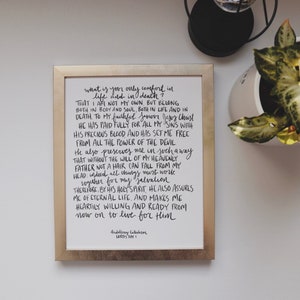 what is your only comfort in
life and in death?
THAT I AM NOT MY OWN, BUT BELONG
BOTH IN BODY AND SOUL, BOTH IN LIFE AND IN
DEATH TO MY faithful Savior Jesus Christ
HE HAS PAID FULLY FOR ALL MY SINS WITH
HIS PRECIOUS BLOOD AND HAS SET ME FREE
FROM ALL THE POWER OF THE DEVIL.
He also preserves me in such a way
THAT WITHOUT THE WILL OF MY HEAVENLY
FATHER NOT A HAIR CAN FALL FROM MY
HEAD. indeed all things must work
together for my salvation.
THEREFORE, BY HIS HOLY SPIRIT HE ALSO ASSURES
ME OF ETERNAL LIFE AND MAKES ME
HEARTILY WILLING AND READY FROM
now on to live for Him.
Heidelberg Catechism,
LORD'S DAY 1